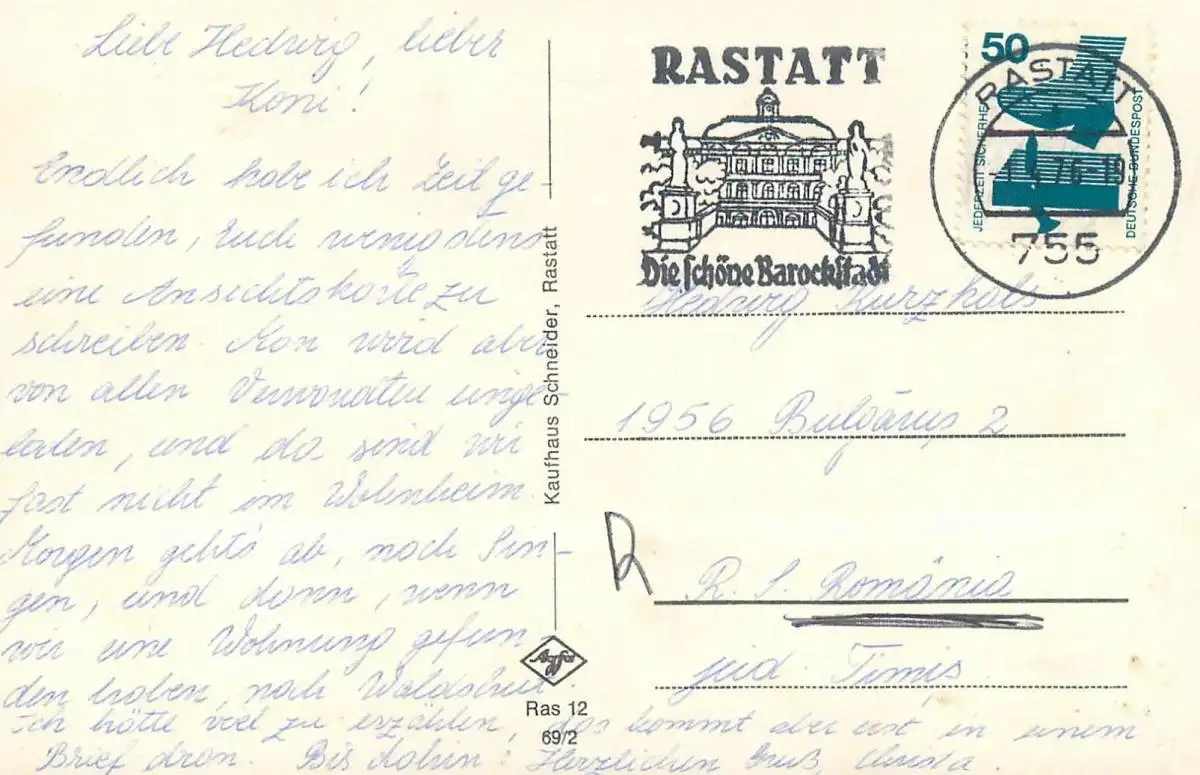 Liebe Hedwig, lieber
Koni!
Endlich hab ich Zeil ge-
funden, Euch wenigstens
eine Ansichtskarte zu
schreiben. Man wird aber
von allen Verwandten einge-
laden, und da sind wir
fast nicht im Wohnheim.
Morgen gehts ab, nach Sin-
gen, und dann, wenn
wir eine Wohnung gefun-
den haben, nach Waldshut.
Ich hätte viel zu erzählen, das kommt aber erst in einem
Brief dran. Bis dahin: Herzlichen Gruß, Christa.
Kaufhaus Schneider, Rastatt
Agfa
Ras 12
69/2
RASTATT
Die schöne Barockstadt
50
JEDERZEIT SICHERHEIT
DEUTSCHE BUNDESPOST
RASTATT
755
Hedwig
1956 Bulgăruș 2
R
R. S. România
jud Timiș